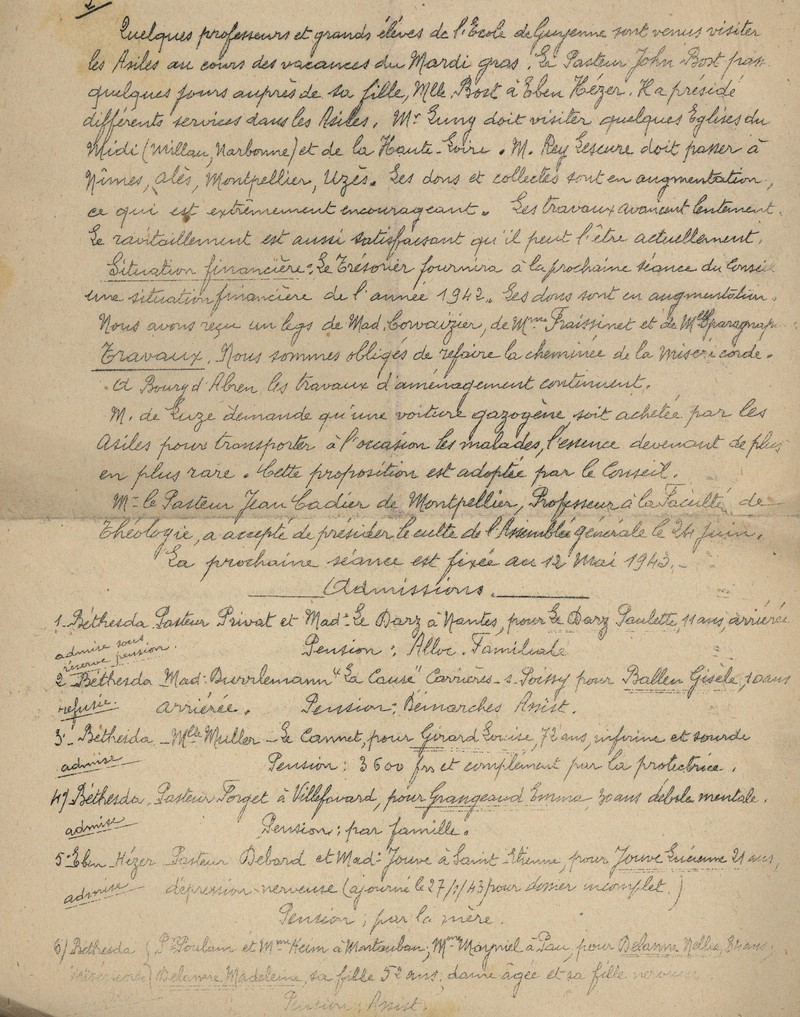 Quelques professeurs et grands élèves de l'École de Guyenne sont venus visiter
les Asiles au cours des vacances du Mardi gras. Le Pasteur John Bost pas
quelques jours auprès de sa fille, Mlle Bost à Eben Hézer. Il a présidé
différents services dans les Asiles. Mr Cuny doit visiter quelques Églises du
Midi (Millau, Narbonne) et de la Haute-Loire. M. Rey Lescure doit passer à
Nîmes, Alès, Montpellier, Uzès. Les dons et collectes sont en augmentation,
ce qui est extrêmement encourageant. Les travaux avancent lentement.
Le ravitaillement est aussi satisfaisant qu'il peut l'être actuellement.
Situation financière: Le Trésorier fournira à la prochaine séance du Conseil
une situation financière de l'année 1942. Les dons sont en augmentation.
Nous avons reçu un legs de Mad. Corvaizier, de Mme Fraissinet et de Mlle
Travaux. Nous sommes obligés de refaire la cheminée de la Miséricorde.
A Bourg d'Abren les travaux d'aménagement continuent.
M. de Luze demande qu'une voiture gazogène soit achetée par les
Asiles pour transporter à l'occasion les malades, l'essence devenant de plus
en plus rare. Cette proposition est adoptée par le Conseil.
Mr le Pasteur Jean Cadier de Montpellier, Professeur à la Faculté de
Théologie, a accepté de présider le culte de l'Assemblée générale le 24 juin.
La prochaine séance est fixée au 12 Mai 1943.
Admissions.
1. Béthesda Pasteur Privat et Mad. Le Darz à Nantes, pour Le Darz Paulette, 11 ans, arriérée
admise sous réserve pension. Pension: Alloc. Familiale
2 Béthesda Mad. Burrlemann "La Cause" Carrières-s-Poissy pour Ballen Gisèle, 10 ans
refusée. arriérée. Pension: Démarches Assist.
3- Béthesda - Mlle Muller - Le Cannet, pour Girard Louise, 72 ans, infirme et sourde
admise Pension: 3600 frs et complément par la protectrice.
4) Béthesda. Pasteur Forget à Villefavard, pour Grangeaud Emma, 30 ans débile mentale.
admise Pension: par famille.
5- Eben Hézer Pasteur Debard et Mad. Jouve à Saint-Etienne, pour Jouve Lucienne 21 ans,
admise dépression nerveuse (ajourné le 27/1/43 pour dossier incomplet.)
Pension: par la mère.
6) Béthesda { Pr Poulain et Mme Keim à Montauban; Mme Mayniel à Pau, pour Delanne Nellie, 84 ans;
Miséricorde} Delanne Madeleine, sa fille 52 ans; dame âgée et sa fille nerveuse
Pension: Assist.